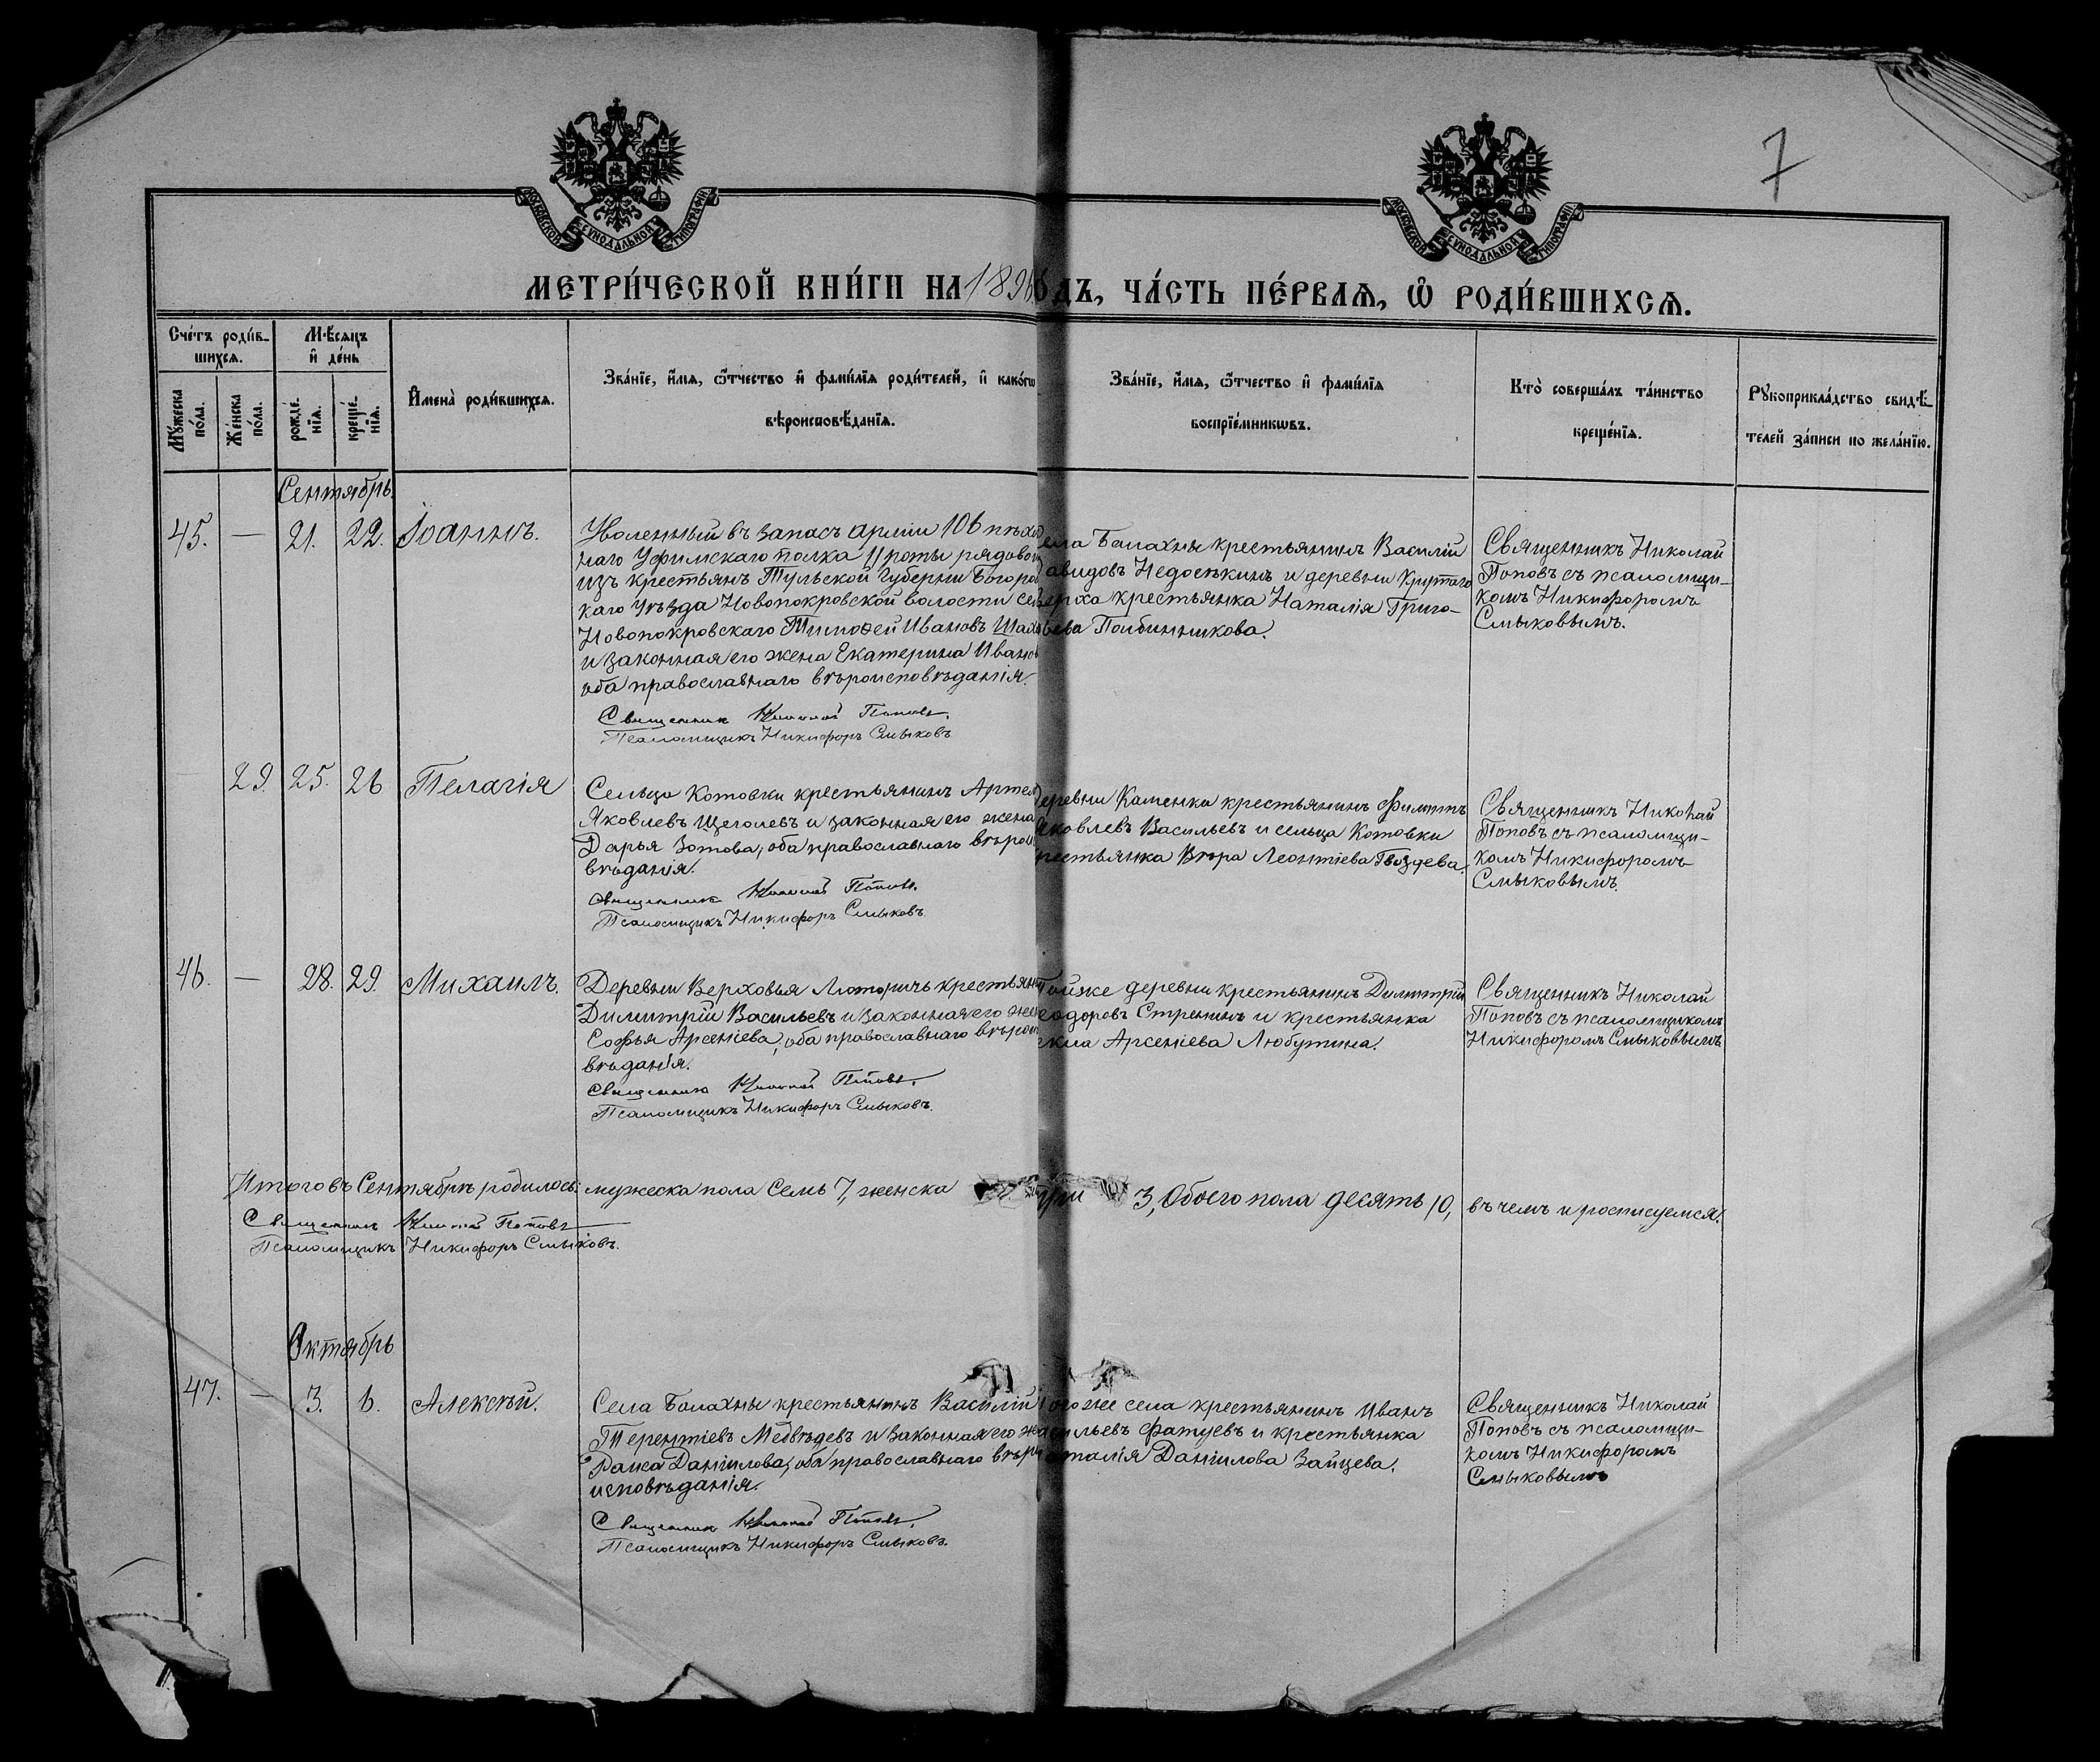 7
МОСКОВСКОЙ СѴНОДАЛЬНОЙ ТИПОГРАФІИ
МОСКОВСКОЙ СѴНОДАЛЬНОЙ ТИПОГРАФІИ
МЕТРИ́ЧЕСКОЙ КНИ́ГИ НА 1896 ОДЪ, ЧА́СТЬ ПЕ́РВАѦ, Ѽ РОДИ́ВШИХСѦ.
Сче́тъ роди́в-
шихсѧ.
Мѣ́сѧцъ
и҆ де́нь
Мꙋ́жеска
по́ла.
Же́нска
по́ла.
рожде́-
нїѧ.
креще́-
нїѧ.
И҆мена̀ роди́вшихсѧ.
Зва́нїе, и҆́мѧ, ѻ҆́тчество и҆ фами́лїѧ роди́телей, и҆ како́гѡ
вѣроисповѣ́данїѧ.
Зва́нїе, и҆́мѧ, ѻ҆́тчество и҆ фами́лїѧ
воспрїе́мникѡвъ.
Кто̀ соверша́лъ та́инство
креще́нїѧ.
Рꙋкоприкла́дство свидѣ́-
телей за́писи по жела́нїю.
Сентябрь.
45. — 21. 22. Іоаннъ.
Уволенный въ запасъ арміи 106 пѣхот
наго Уфимскаго полка роты рядовой
изъ крестьянъ Тульской губерніи Богоро
каго уѣзда Новопокровской волости се
Новопокровскаго Тимоѳей Ивановъ
и законная его жена Екатерина Ивано
оба православнаго вѣроисповѣданія.
Священникъ Николай Поповъ.
Псаломщикъ Никифоръ Смыковъ
ела Балахны крестьянинъ Василій
авидовъ Недосѣкинъ и деревни Крутого
ерха крестьянка Наталія Григо-
ьева
Священникъ Николай
Поповъ съ псаломщи-
комъ Никифоромъ
Смыковымъ.
29. 25. 26 Пелагія
Сельца Котовки крестьянинъ Артем
Яковлевъ Щеголевъ и законная его жена
Дарья Зотова, оба православнаго вѣрои
вѣданія.
Священникъ Николай Поповъ.
Псаломщикъ Никифоръ Смыковъ.
деревни Каменки крестьянинъ Филиппъ
Яковлевъ Васильевъ и сельца Котовки
рестьянка Вѣра Леонтіева Гвоздева.
Священникъ Николай
Поповъ съ псаломщи-
комъ Никифоромъ
Смыковымъ.
46. — 28. 29. Михаилъ.
Деревни Верховья Люторичь крестьяни
Димитрій Васильевъ и законная его жен
Софья Арсеніева, оба православнаго вѣрои
вѣданія.
Священникъ Николай Поповъ.
Псаломщикъ Никифоръ Смыковъ.
Тойже деревни крестьянинъ Димитрій
еодоровъ Стренинъ и крестьянка
Арсеніева Любутина.
Священникъ Николай
Поповъ съ псаломщикомъ
Никифоромъ Смыковымъ
Итого въ Сентябрѣ родилось: мужеска пола семь 7, женска три 3, Обоего пола десять 10, въ чемъ и росписуемся.
Священникъ Николай Поповъ
Псаломщикъ Никифоръ Смыковъ.
Октябрь
47. — 3. 6. Алексѣй.
Села Балахны крестьянинъ Василій
Терентіевъ Медвѣдевъ и законная его же
Раиса Даніилова, оба православнаго вѣро
исповѣданія.
Священникъ Николай Поповъ.
Псаломщикъ Никифоръ Смыковъ.
тогоже села крестьянинъ Иванъ
асильевъ Фатуевъ и крестьянка
аталія Даніилова Зайцева.
Священникъ Николай
Поповъ съ псаломщи-
комъ Никифоромъ
Смыковымъ